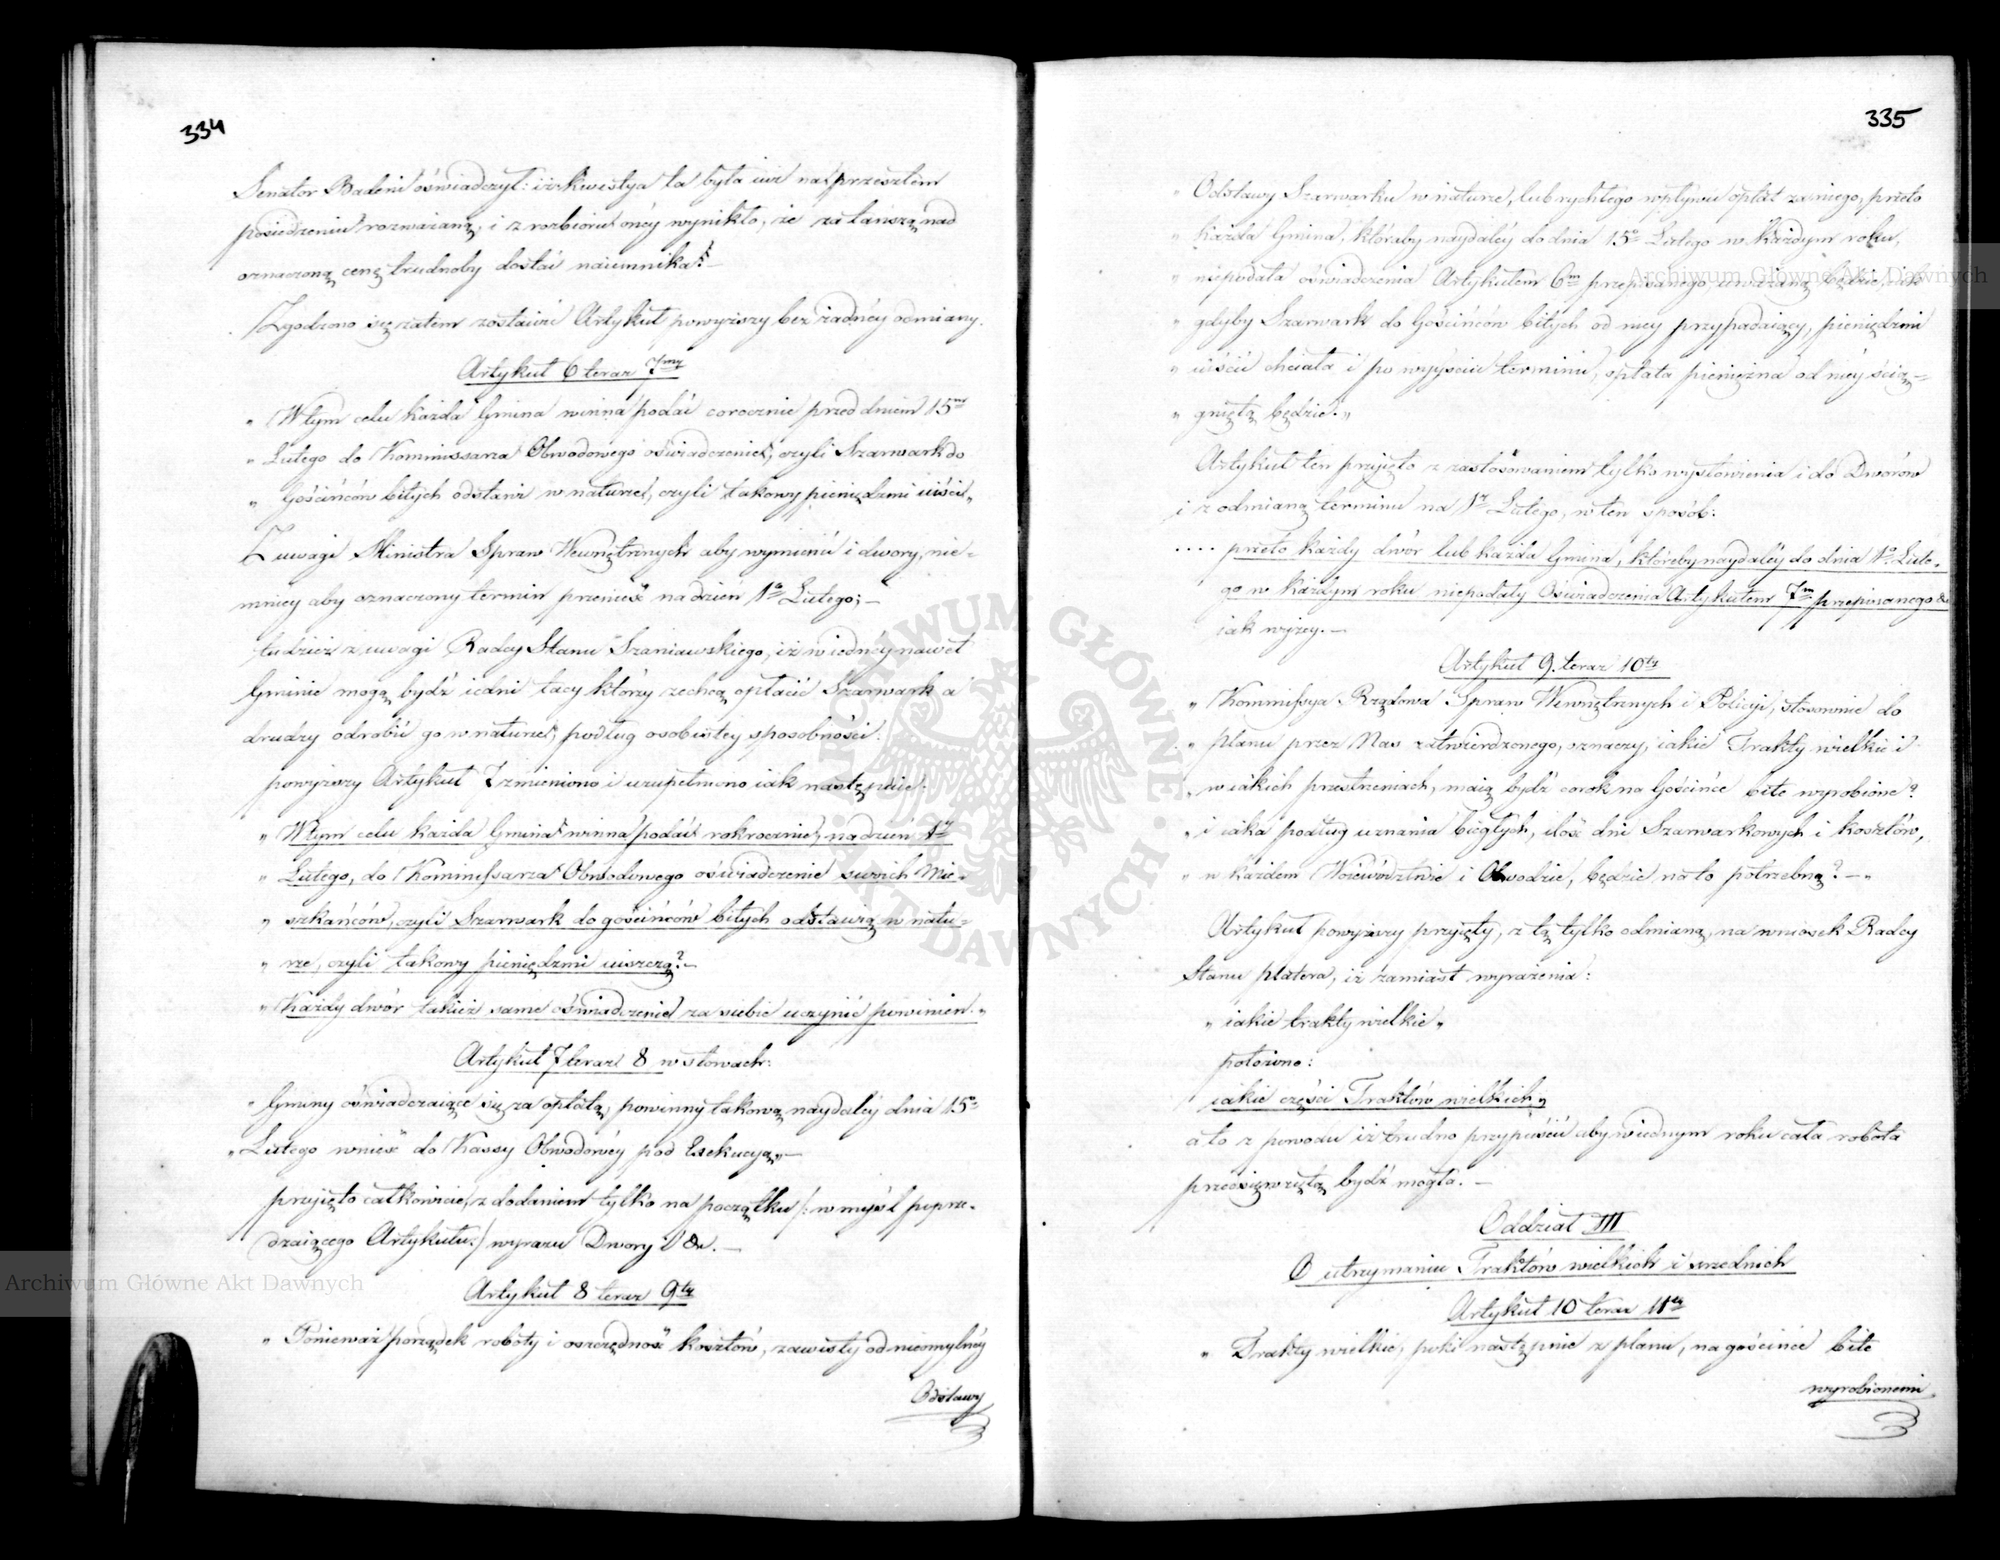 334
Senator Badeni oświadczył: iż kwestya ta była iuż na przeszłem
posiedzeniu rozważaną, i z rozbioru onéy wynikło, że za tańszą nad
oznaczoną cenę trudnoby dostać naiemnika. —
Zgodzono się zatem zostawić Artykuł powyższy bez żadnéy odmiany.
Artykuł 6 teraz 7my
„ W tym celu każda Gmina winna podać corocznie przed dniem 15m
„ Lutego do Kommissarza Obwodowego oświadczenie, czyli Szarwark do
„ Gościńców bitych odstawi w naturze, czyli takowy pieniędzmi uiści „
Z uwagi Ministra Spraw Wewnętrznych aby wymienić i dwory, nie-
mniey aby oznaczony termin przenieść na dzień 1o Lutego; —
tudzież z uwagi Radcy Stanu Szaniawskiego, iż w iedney nawet
Gminie mogą bydź iedni tacy którzy zechcą opłacić Szarwark a
drudzy odrobić go w naturze, podług osobistey sposobności.
powyższy Artykuł zmieniono i uzupełniono iak następuie.
„ W tym celu każda Gmina winna podać rokrocznie, na dzień 1o
„ Lutego, do Kommissarza Obwodowego oświadczenie swoich Mie-
„ szkańców, czyli Szarwark do gościńców bitych odstawią w natu-
„ rze, czyli takowy pieniędzmi uiszczą? —
„ Każdy dwór takież same oświadczenie za siebie uczynić powinien. „
Artykuł 7 teraz 8 w słowach:
„ Gminy oświadczaiące się za opłatą, powinny takową naydaléy dnia 15o
„ Lutego wnieść do Kassy Obwodowéy pod Exekucyą „ —
przyięto całkowicie, z dodaniem tylko na początku /: w myśl poprze-
dzaiącego Artykułu :/ wyrazu Dwory i &c. —
Artykuł 8 teraz 9ty
„ Ponieważ porządek roboty i oszczędność kosztów, zawisły od nieomylnéy
Odstawy
335
„ Odstawy Szarwarku w naturze, lub rychłego wpływu opłat zaniego, przeto
„ każda Gmina, któraby naydaléy do dnia 15o Lutego w każdym roku,
„ niepodała oświadczenia Artykułem 6m przepisanego, uważaną będzie, iak
„ gdyby Szarwark do Gościńców bitych od niey przypadaiący, pieniędzmi
„ uiścić chciała i po wyyściu terminu, opłata pieniężna od niéy ścią-
„ gniętą będzie. „
Artykuł ten przyięto z zastosowaniem tylko wysłowienia i do Dworów
i z odmianą terminu na 1o Lutego, w ten sposób:
.... przeto każdy dwór lub każda Gmina, któreby naydaléy do dnia 1o Lute-
go w każdym roku niepodały Oświadczenia Artykułem 7m przepisanego &c
iak wyżey. —
Artykuł 9. teraz 10ty
„ Kommissya Rządowa Spraw Wewnętrznych i Policyi, stosownie do
„ planu przez Nas zatwierdzonego, oznaczy, iakie Trakty wielkie i
„ w iakich przestrzeniach, maią bydź corok na Gościńce bite wyrobione?
„ i iaka podług uznania biegłych, ilość dni Szarwarkowych i kosztów,
„ w każdem Woiewództwie i Obwodzie, będzie na to potrzebną? — „
Artykuł powyższy przyięty, z tą tylko odmianą, na wniosek Radcy
Stanu Platera, iż zamiast wyrażenia:
„ iakie trakty wielkie „
położono:
iakie części Traktów wielkich „
a to z powodu iż trudno przypuścić aby w iednym roku cała robota
przedsięwziętą bydź mogła. —
Oddział III
O utrzymaniu Traktów wielkich i średnich
Artykuł 10 teraz 11ty
„ Trakty wielkie, póki następnie z planu, na gościńce bite
wyrobionemi
ARCHIWUM GŁÓWNE AKT DAWNYCH
Archiwum Główne Akt Dawnych
Archiwum Główne Akt Dawnych